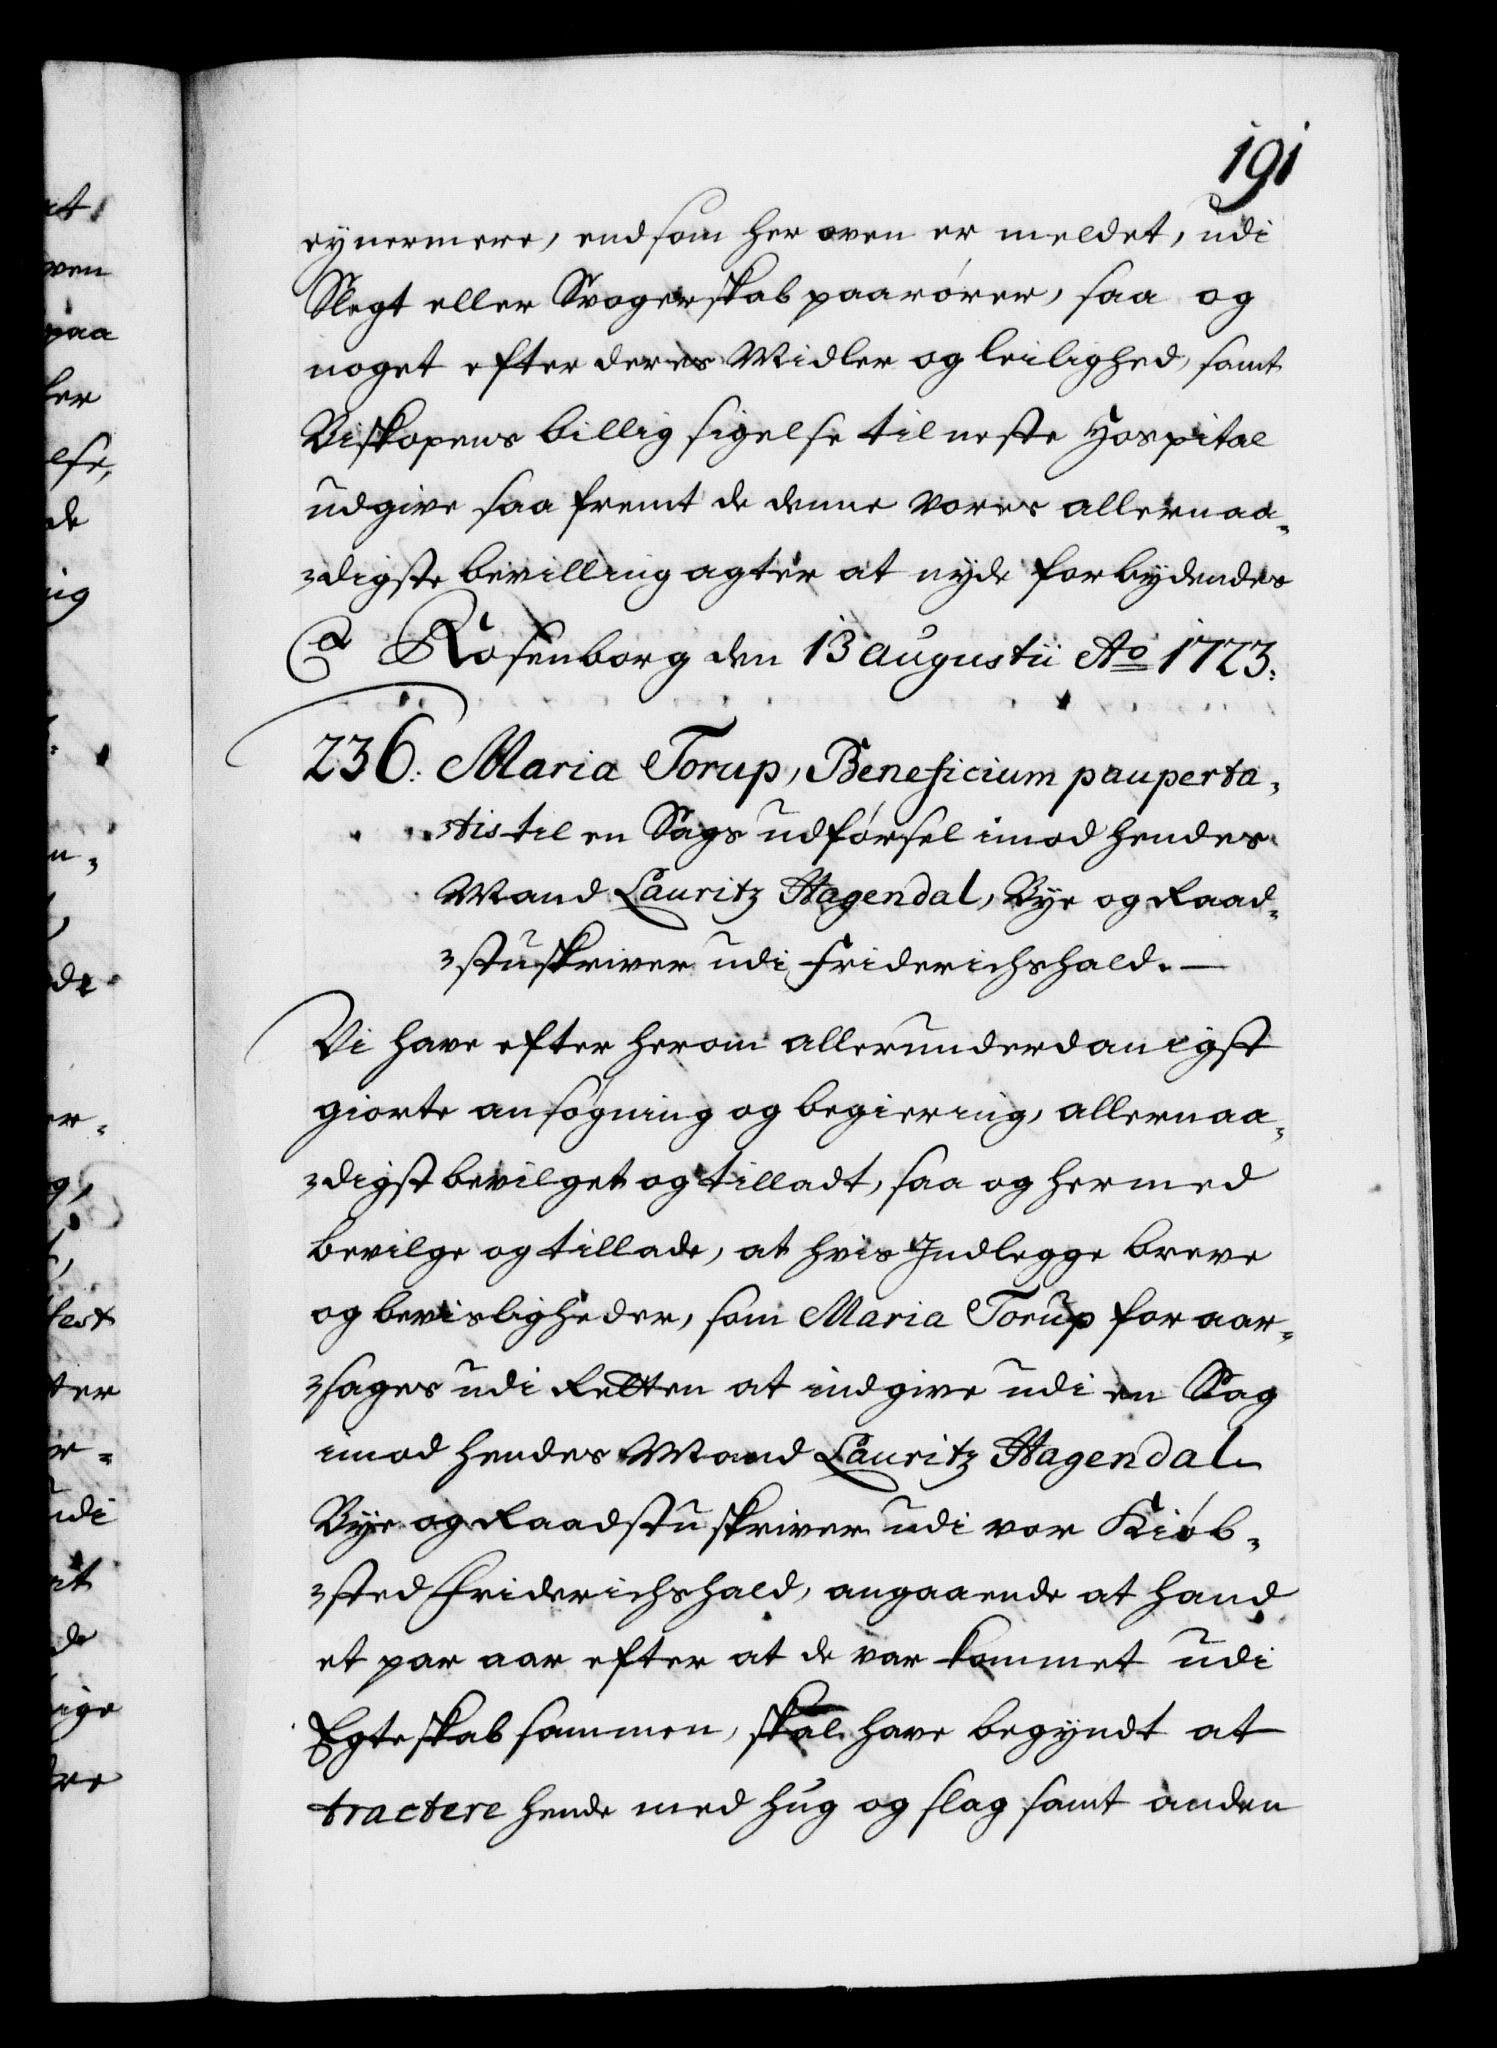 191
eÿnermere, end som her oven er meldet, udi
Slegt eller Svogerskab paarører, saa og
noget efter deres Midler og leilighed, samt
Biskopens billig sigelse til neste Hospital
udgive saa fremt de denne vores allernaa-
-digste bevilling agter at nyde forbydendes
Rosenborg den 13 augustii Ao 1723.
236. Maria Torup, Beneficium pauperta-
-tis til en Sags udførsel imod hendes
Mand Lauritz Hagendal, Bye og Raad-
-stuskriver udi Friderichshald.
Vi have efter herom allerunderdanigst
giorte ansøgning og begiering, allernaa-
-digst bevilget og tilladt, saa og hermed
bevilge og tillade, at hvis Indlegge breve
og bevisligheder, som Maria Torup foraar-
-sages udi Retten at indgive udi en Sag
imod hendes Mand Lauritz Hagendal
Bye og Raadstuskriver udi vor Kiøb-
-sted Friderichshald, angaaende at hand
et par aar efter at de var kommet udi
Egteskab sammen, skal have begyndt at
tractere hende med hug og slag samt anden